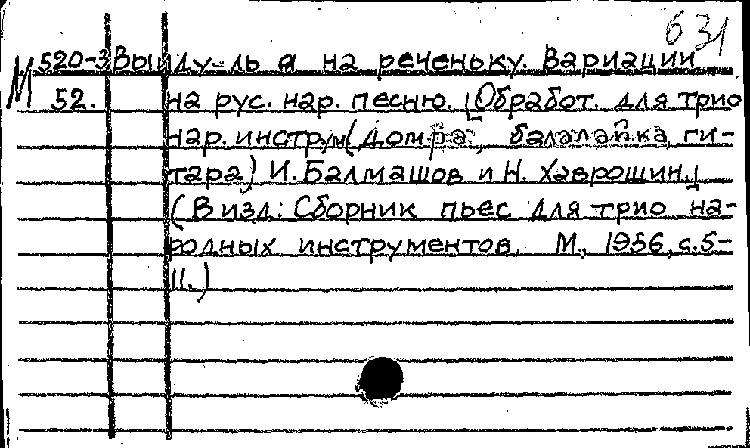 631
М 520-3 Выйду-ль я на реченьку. Вариации
52. на рус. нар. песню. [Обработ. для трио
нар. инструм(домра, балалайка, ги-
тара) И. Балмашов и Н. Хаврошин]
(В изд: Сборник пьес для трио на-
родных инструментов. М., 1956, с. 5-
11.)